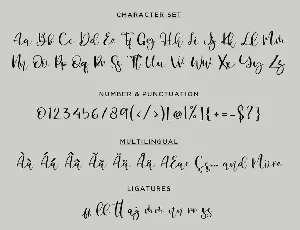 CHARACTER SET
Aa Bb Cc Dd Ee Ff Gg Hh Ii Jj Kk Ll Mm
Nn Oo Pp Qq Rr Ss Tt Uu Vv Ww Xx Yy Zz
NUMBER & PUNCTUATION
0123456789(</>)[@|%]{+=-$?}
MULTILINGUAL
Àà Áá Ââ Ãã Ää Åå ÆÆae Çç... and More
LIGATURES
ff ll tt aj mm nn rr ss